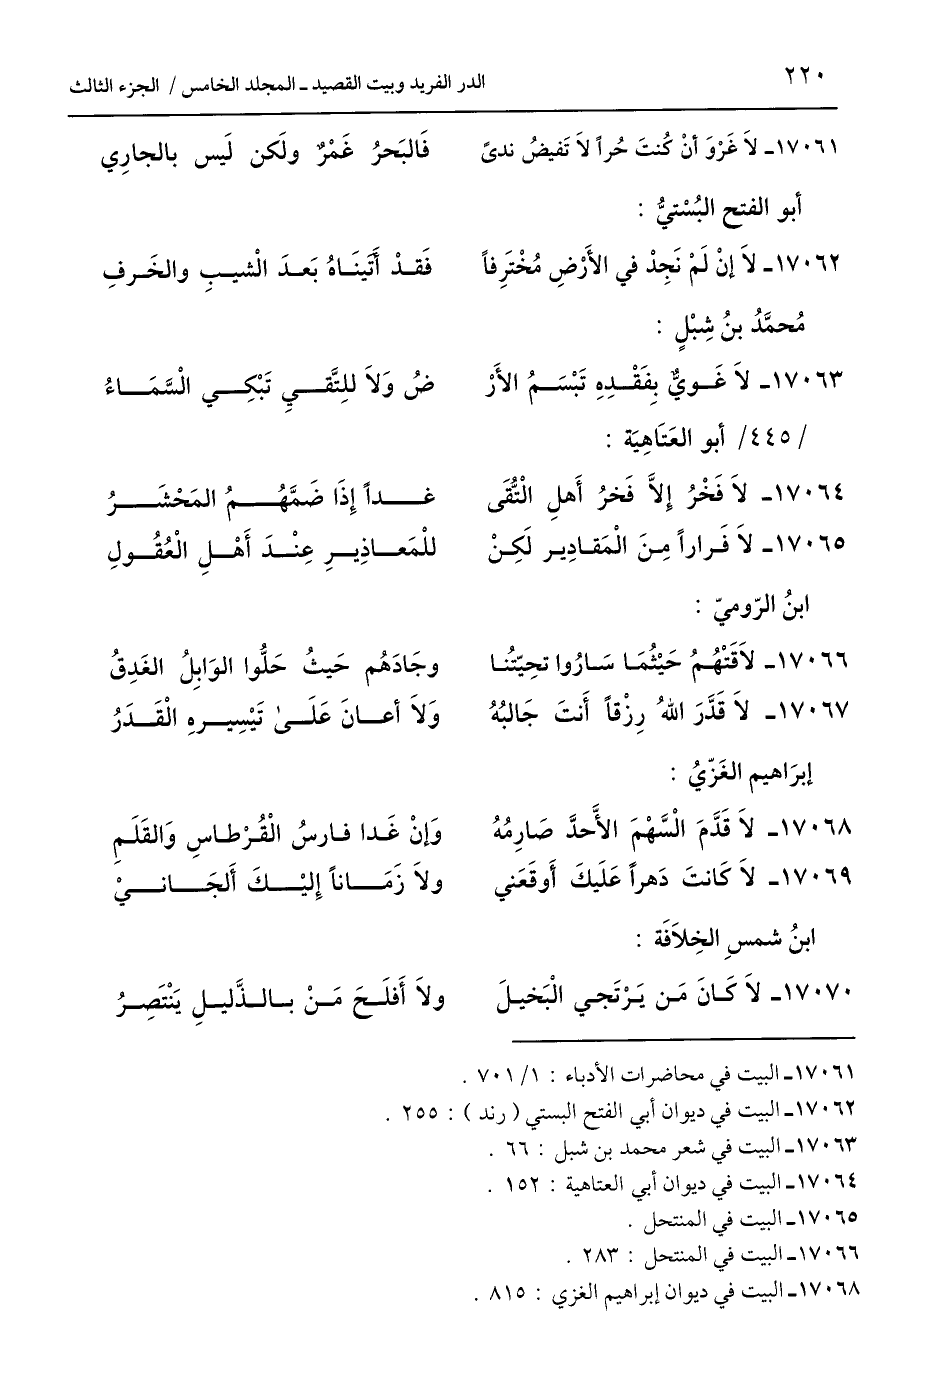 ٢٢٠ الدر الفريد وبيت القصيد ـ المجلد الخامس / الجزء الثالث
١٧٠٦١ـ لاَ غَرْوَ أنْ كُنتَ حُراً لاَ تَفيضُ ندىً فَالبَحرُ غَمْرٌ ولَكن لَيس بالجارِي
أبو الفتح البُسْتيُّ :
١٧٠٦٢ـ لاَ إنْ لَمْ نَجِدْ في الأَرْضِ مُخْتَرِفاً فَقدْ أَتَينَاهُ بَعدَ الْشيبِ والخَرفِ
مُحمَّدُ بنُ شِبْلٍ :
١٧٠٦٣ـ لاَ غَويٌّ بِفَقْدِهِ تَبْسَمُ الأَرْ ضُ وَلاَ للِتَّقيِ تَبْكِي الْسَّمَاءُ
/ ٤٤٥/ أبو العَتَاهِيَة :
١٧٠٦٤ـ لاَ فَخْرُ إلاَّ فَخرُ أَهلِ الْتُّقَى غَداً إذَا ضَمَّهُمُ المَحْشَرُ
١٧٠٦٥ـ لاَ فَراراً مِنَ الْمَقادِيرِ لَكِنْ للْمَعاذِيرِ عِنْدَ أَهْلِ الْعُقُولِ
ابنُ الرّوميّ :
١٧٠٦٦ـ لاَقَتْهُمُ حَيْثُمَا سَارُوا تحيّتُنا وجَادَهُم حَيثُ حَلُّوا الوَابِلُ الغَدِقُ
١٧٠٦٧ـ لاَ قَدَّرَ اللهُ رِزْقاً أنتَ جَالبُهُ وَلاَ أعانَ عَلَىٰ تَيْسِيرِهِ الْقَدَرُ
إبرَاهيم الغَزّيُ :
١٧٠٦٨ـ لاَ قَدَّمَ الْسَّهْمَ الأَّحدَّ صَارِمُهُ وَإنْ غَدا فارسُ الْقُرْطاسِ وَالقَلَمِ
١٧٠٦٩ـ لاَ كَانتَ دَهراً عَلَيكَ أوقَعَني ولاَ زَمَاناً إليْكَ أَلجَانيْ
ابنُ شمسِ الخِلاَفَة :
١٧٠٧٠ـ لاَ كَانَ مَن يَرْتَجي الْبَخيلَ ولاَ أَفلَحَ مَنْ بالذَّليلِ يَنْتَصِرُ
١٧٠٦١ـ البيت في محاضرات الأدباء : ١/ ٧٠١ .
١٧٠٦٢ـ البيت في ديوان أبي الفتح البستي ( رند ) : ٢٥٥ .
١٧٠٦٣ـ البيت في شعر محمد بن شبل : ٦٦ .
١٧٠٦٤ـ البيت في ديوان أبي العتاهية : ١٥٢ .
١٧٠٦٥ـ البيت في المنتحل .
١٧٠٦٦ـ البيت في المنتحل : ٢٨٣ .
١٧٠٦٨ـ البيت في ديوان إبراهيم الغزي : ٨١٥ .